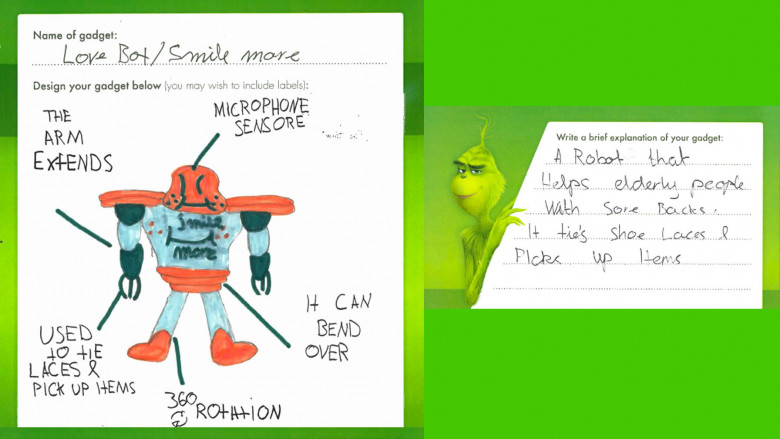 Name of gadget:
Love Bot/Smile more
Design your gadget below (you may wish to include labels):
THE
ARM
EXtENDS
MICROPHONE
SENSORE
Smile
more
USED
tO tIE
LACES &
PICK UP ItEMS
It CAN
BEND
OVER
360
ROtAtION
Write a brief explanation of your gadget:
A Robot that
Helps elderly people
With Sore Backs.
It tie's Shoe Laces &
Picks up Items